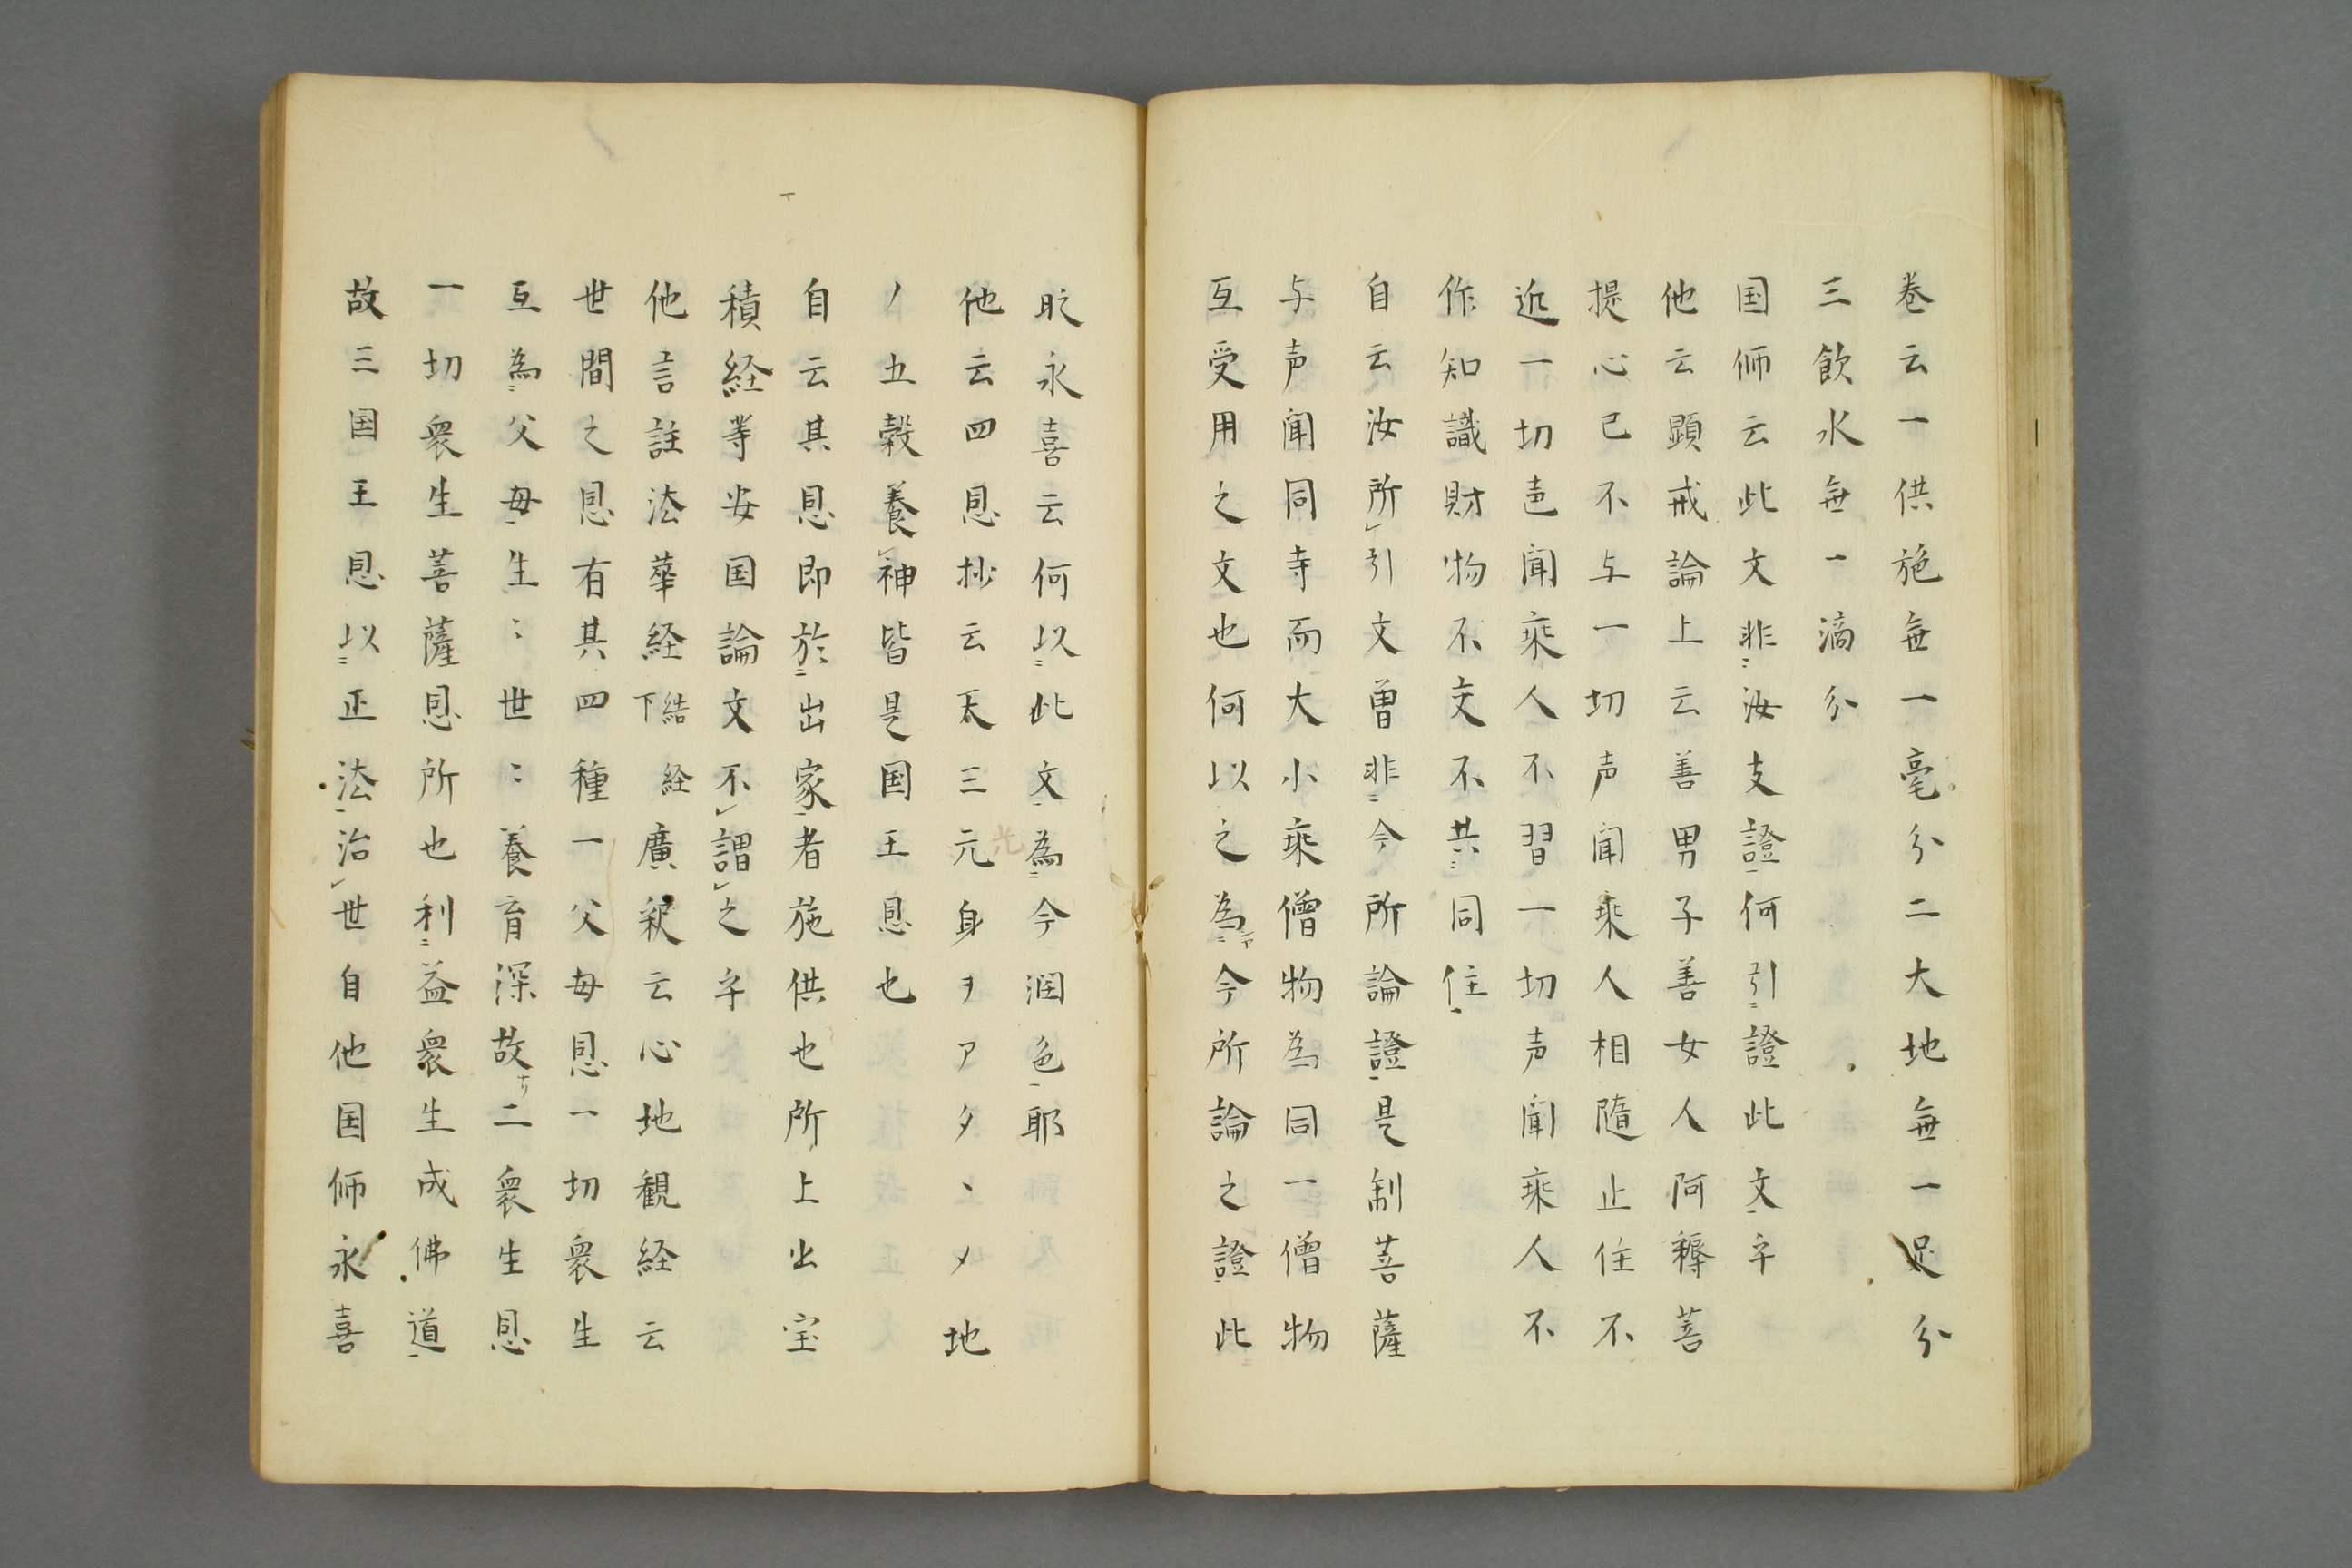 巻云一供施無一毫分二大地無一足分
三飲水無一滴分
国师云此文非汝支證何引證此文字
他云顕戒論上云善男子善女人阿耨菩
提心已不与一切声聞乘人相隨止住不
近一切邑聞乘人不習一切声聞乘人不
作知識財物不交不共同住
自云汝所引文曽非今所論證是制菩薩
与声聞同寺而大小乘僧物為同一僧物
互受用之文也何以之為今所論之證此
永喜云何以此文為今潤色耶
他云四恩抄云天三元身ヲアタヽメ地
ノ五穀養神皆是国王恩也
自云其恩即於出家者施供也所上出宝
積経等安国論文不謂之字
他言註法華経結経下廣釈云心地観経云
世間之恩有其四種一父母恩一切衆生
互為父母生〻世〻養育深故ナリ二衆生恩
一切衆生菩薩恩所也利益衆生成佛道
故三国王恩以正法治世自他国师永喜